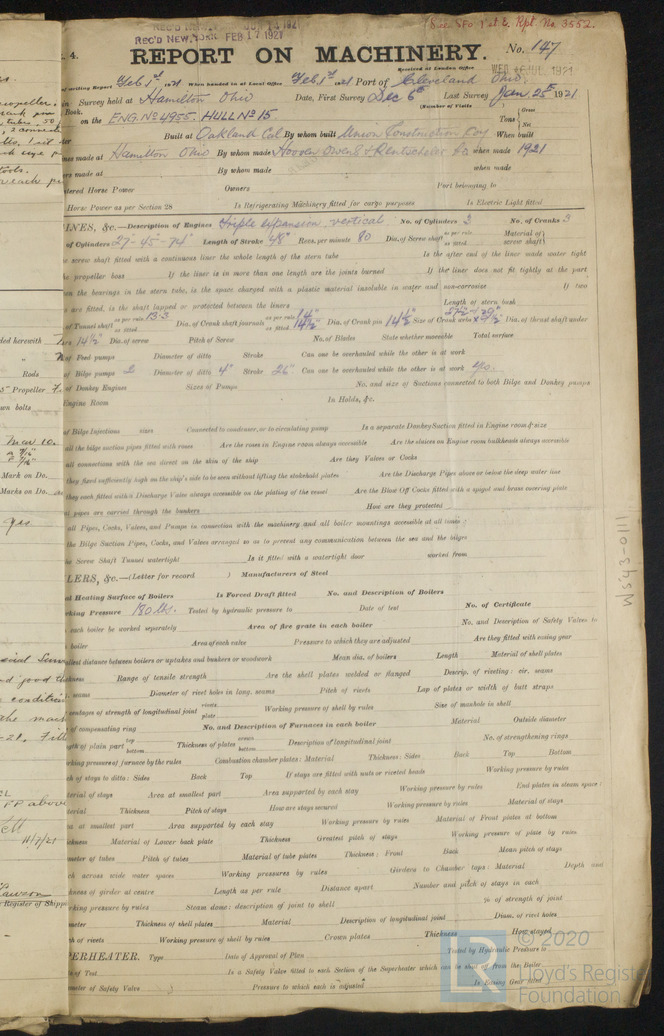 See SFO 1st E. Rpt. No 3552.
REC'D NEW YORK FEB 17 1921
REPORT ON MACHINERY. No. 147
Received at London Office
of writing Report Feb 1st 1921 When handed in at Local Office Feb 1st 1921 Port of Cleveland Ohio.
in Survey held at Hamilton Ohio Date, First Survey Dec 6th Last Survey Jan. 25th 1921
Book. (Number of Visits
on the ENG. No 4955. HULL No 15 Tons Gross Net
Built at Oakland Cal By whom built Union Construction Coy When built
made at Hamilton Ohio By whom made Hooven Owens & Rentschler Co when made 1921
made at By whom made when made
Horse Power Owners Port belonging to
Horse Power as per Section 28 Is Refrigerating Machinery fitted for cargo purposes Is Electric Light fitted
INES, &c.—Description of Engines Triple expansion vertical No. of Cylinders 3 No. of Cranks 3
of Cylinders 27-45-74" Length of Stroke 48" Revs. per minute 80 Dia. of Screw shaft as per rule as fitted Material of screw shaft
screw shaft fitted with a continuous liner the whole length of the stern tube Is the after end of the liner made water tight
the propeller boss If the liner is in more than one length are the joints burned If the liner does not fit tightly at the part
the bearings in the stern tube, is the space charged with a plastic material insoluble in water and non-corrosive If two
are fitted, is the shaft lapped or protected between the liners Length of stern bush
of Tunnel shaft as per rule 13.3 as fitted Dia. of Crank shaft journals as per rule 14" as fitted 14½" Dia. of Crank pin 14½" Size of Crank webs Dia. of thrust shaft under
14½" Dia. of screw Pitch of Screw No. of Blades State whether moveable Total surface
of Feed pumps Diameter of ditto Stroke Can one be overhauled while the other is at work
of Bilge pumps 2 Diameter of ditto 4" Stroke 26" Can one be overhauled while the other is at work yes.
of Donkey Engines Sizes of Pumps No. and size of Suctions connected to both Bilge and Donkey pumps
Engine Room In Holds, &c.
of Bilge Injections sizes Connected to condenser, or to circulating pump Is a separate Donkey Suction fitted in Engine room & size
all the bilge suction pipes fitted with roses Are the roses in Engine room always accessible Are the sluices on Engine room bulkheads always accessible
all connections with the sea direct on the skin of the ship Are they Valves or Cocks
they fixed sufficiently high on the ship's side to be seen without lifting the stokehold plates Are the Discharge Pipes above or below the deep water line
they each fitted with a Discharge Valve always accessible on the plating of the vessel Are the Blow Off Cocks fitted with a spigot and brass covering plate
pipes are carried through the bunkers How are they protected
all Pipes, Cocks, Valves, and Pumps in connection with the machinery and all boiler mountings accessible at all times
the Bilge Suction Pipes, Cocks, and Valves arranged so as to prevent any communication between the sea and the bilges
the Screw Shaft Tunnel watertight Is it fitted with a watertight door worked from
LERS, &c.—(Letter for record ) Manufacturers of Steel
Heating Surface of Boilers Is Forced Draft fitted No. and Description of Boilers
king Pressure 180 lbs. Tested by hydraulic pressure to Date of test No. of Certificate
each boiler be worked separately Area of fire grate in each boiler No. and Description of Safety Valves to
boiler Area of each valve Pressure to which they are adjusted Are they fitted with easing gear
allest distance between boilers or uptakes and bunkers or woodwork Mean dia. of boilers Length Material of shell plates
kness Range of tensile strength Are the shell plates welded or flanged Descrip. of riveting: cir. seams
seams Diameter of rivet holes in long. seams Pitch of rivets Lap of plates or width of butt straps
centages of strength of longitudinal joint rivets plate Working pressure of shell by rules Size of manhole in shell
of compensating ring No. and Description of Furnaces in each boiler Material Outside diameter
of plain part top bottom Thickness of plates crown bottom Description of longitudinal joint No. of strengthening rings
king pressure of furnace by the rules Combustion chamber plates: Material Thickness: Sides Back Top Bottom
of stays to ditto: Sides Back Top If stays are fitted with nuts or riveted heads Working pressure by rules
terial of stays Area at smallest part Area supported by each stay Working pressure by rules End plates in steam space:
terial Thickness Pitch of stays How are stays secured Working pressure by rules Material of stays
a at smallest part Area supported by each stay Working pressure by rules Material of Front plates at bottom
ickness Material of Lower back plate Thickness Greatest pitch of stays Working pressure of plate by rules
meter of tubes Pitch of tubes Material of tube plates Thickness: Front Back Mean pitch of stays
across wide water spaces Working pressures by rules Girders to Chamber tops: Material Depth and
kness of girder at centre Length as per rule Distance apart Number and pitch of stays in each
king pressure by rules Steam dome: description of joint to shell % of strength of joint
meter Thickness of shell plates Material Description of longitudinal joint Diam. of rivet holes
of rivets Working pressure of shell by rules Crown plates Thickness How stayed
PERHEATER. Type Date of Approval of Plan Tested by Hydraulic Pressure to
of Test Is a Safety Valve fitted to each Section of the Superheater which can be shut off from the Boiler
meter of Safety Valve Pressure to which each is adjusted Is Easing Gear fitted
W543-0110
© 2020
Lloyd's Register
Foundation